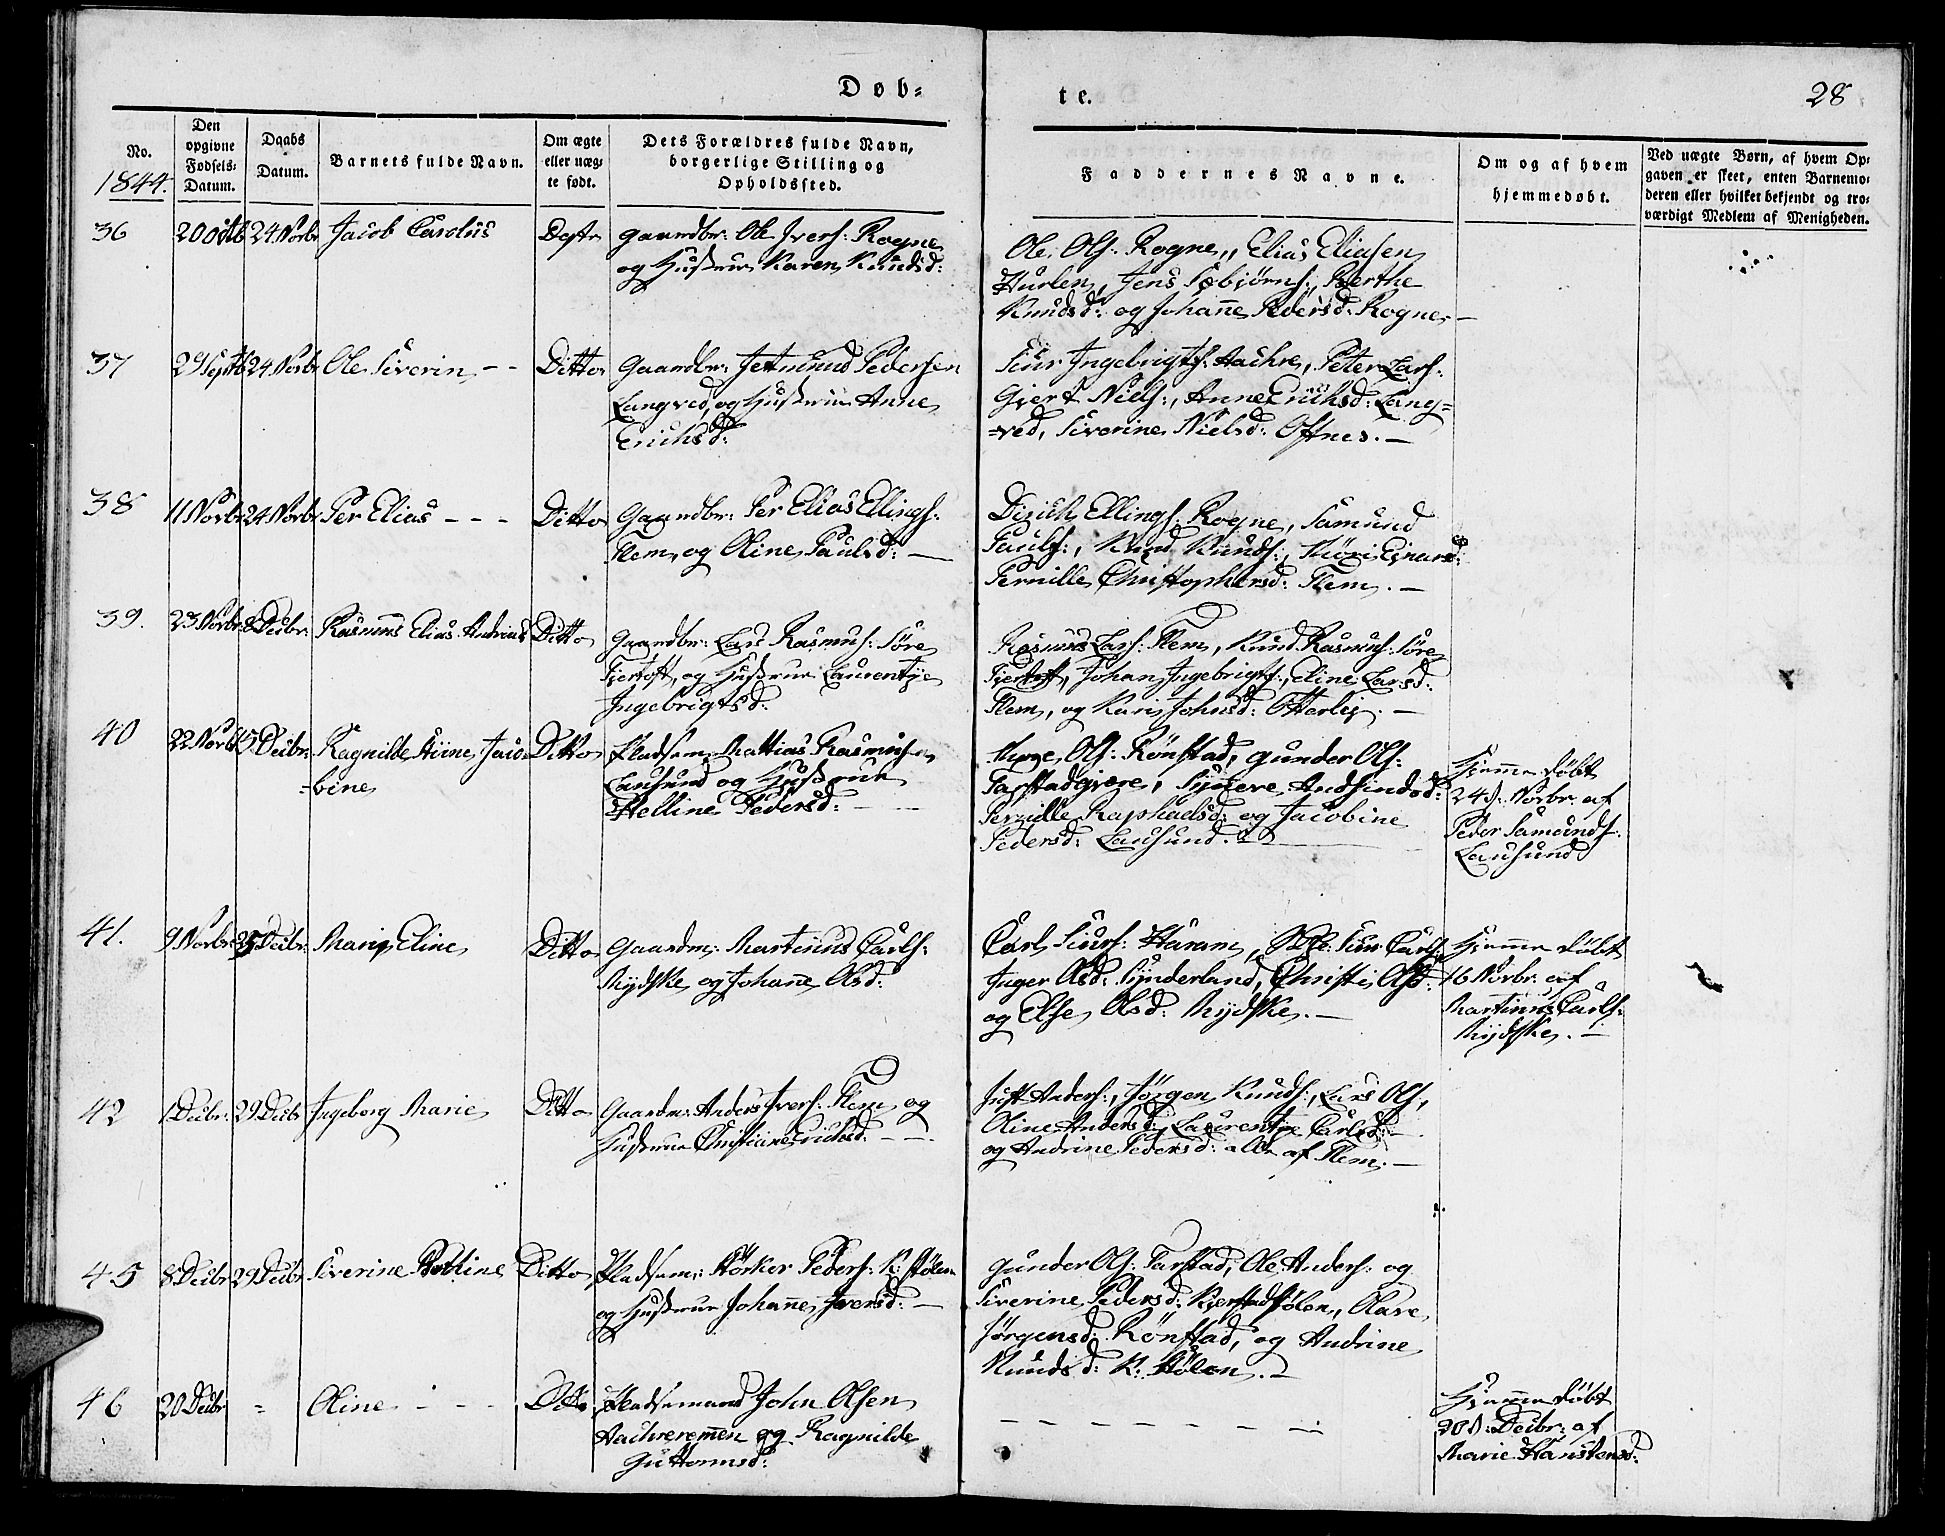 Døb=
te.
28
No.
1844.
Den opgivne Fødsels-Datum.
Daabs Datum.
Barnets fulde Navn.
Om ægte eller uægte født.
Dets Forældres fulde Navn, borgerlige Stilling og Opholdssted.
Faddernes Navne.
Om og af hvem hjemmedøbt.
Ved uægte Børn, af hvem Opgaven er skeet, enten Barnemoderen eller hvilket bekjendt og troværdigt Medlem af Menigheden.
36 20 Octb 24 Novbr Jacob Carolus
Gaardbr: Ole Ivers: Rogne
og Hustrue Karen Knudsd:
Ole Ols: Rogne, Elias Eliasen
Hurlen, Jens Sæbjörns:, Berthe
Knudsd: og Johanne Pedersd: Rogne –
37 29 Septb 24 Novbr Ole Siverin – – Ditto
Gaardbr: Jetmund Pedersen
Langved, og Hustrue Anne
Erichsd:
Siur Ingebrigts: Aachre, Peter Lars:
Giert Niels:, Anne Erichsd: Lang=
=ved, Siverine Nielsd: Oftnes. –
38 11 Novbr 24 Novbr Per Elias – – – Ditto
Gaardbr: Per Elias Ellings:
Flem, og Oline Paulsd: –
Didrich Ellings: Rogne, Samund
Pauls:, Knud Knuds:,
Pernille Christophersd: Flem. –
39. 23 Novbr 8 Decbr: Rasmus Elias Andreas Ditto
Gaardbr: Lars Rasmus: Söre
Fjertoft, og Hustrue Laurentze
Ingebrigtsd:
Rasmus Lars: Flem, Knud Rasmus: Söre
Fjertoft, Johan Ingebrigts:, Eline Larsd:
Flem, og Kari Johnsd: Otterlei. –
40 22 Novbr Decbr: Ragnilde Jaco= Ditto
=bine
Pladsem: Mattias Rasmusen
Lausund og Hustrue
Helline Pedersd: –
Ols: Rönstad, Gunder Ols:
Andsindsd:
Pernille Raphaelsd: og Jacobine
Pedersd: Lausund. –
Hjemme döbt
24d: Novbr: af
Peder Samunds:
Lausund
41. 9 Novbr 25 Decbr: Marie Eline Ditto
Gaardm: Martinus Carls:
Mydske og Johanne Olsd:
Carl Siurs: Haram, Siur Carls:
Inger Olsd: Synderland, Christi Olsd:
og Else Olsd: Mydske. –
Hjemme döbt
16 Novbr: af
Martinus Carls:
Mydske. –
42 1 Decbr: 29 Decbr Ingeborg Marie Ditto
Gaardm: Anders Ivers: Flem, og
Hustrue Christiane Erichsd: – –
Just Anders:, Jörgen Knuds:, Lars Ols:,
Oline Andersd:, Laurentze Carlsd: –
og Andrine Pedersd: alle af Flem. –
45 8 Decbr 29 Decbr Siverine Ditto
Pladsem: Störker Peders: K: stölen
og Hustrue Johanne Iversd: –
Gunder Ols: Farstad, Ole Anders: og
Siverine Pedersd: Kjerstadstölen, Olave
Jörgensd: Rönstad, og Andrine
Knudsd: K: Stölen. –
46 20 Decbr = Oline – – – Ditto
Pladsemand John Olsen
Aachreremen og Ragnilde
Guttormsd:
– – – – – – –
Hjemme döbt
30d: Decbr: af
Marie Haustensd: